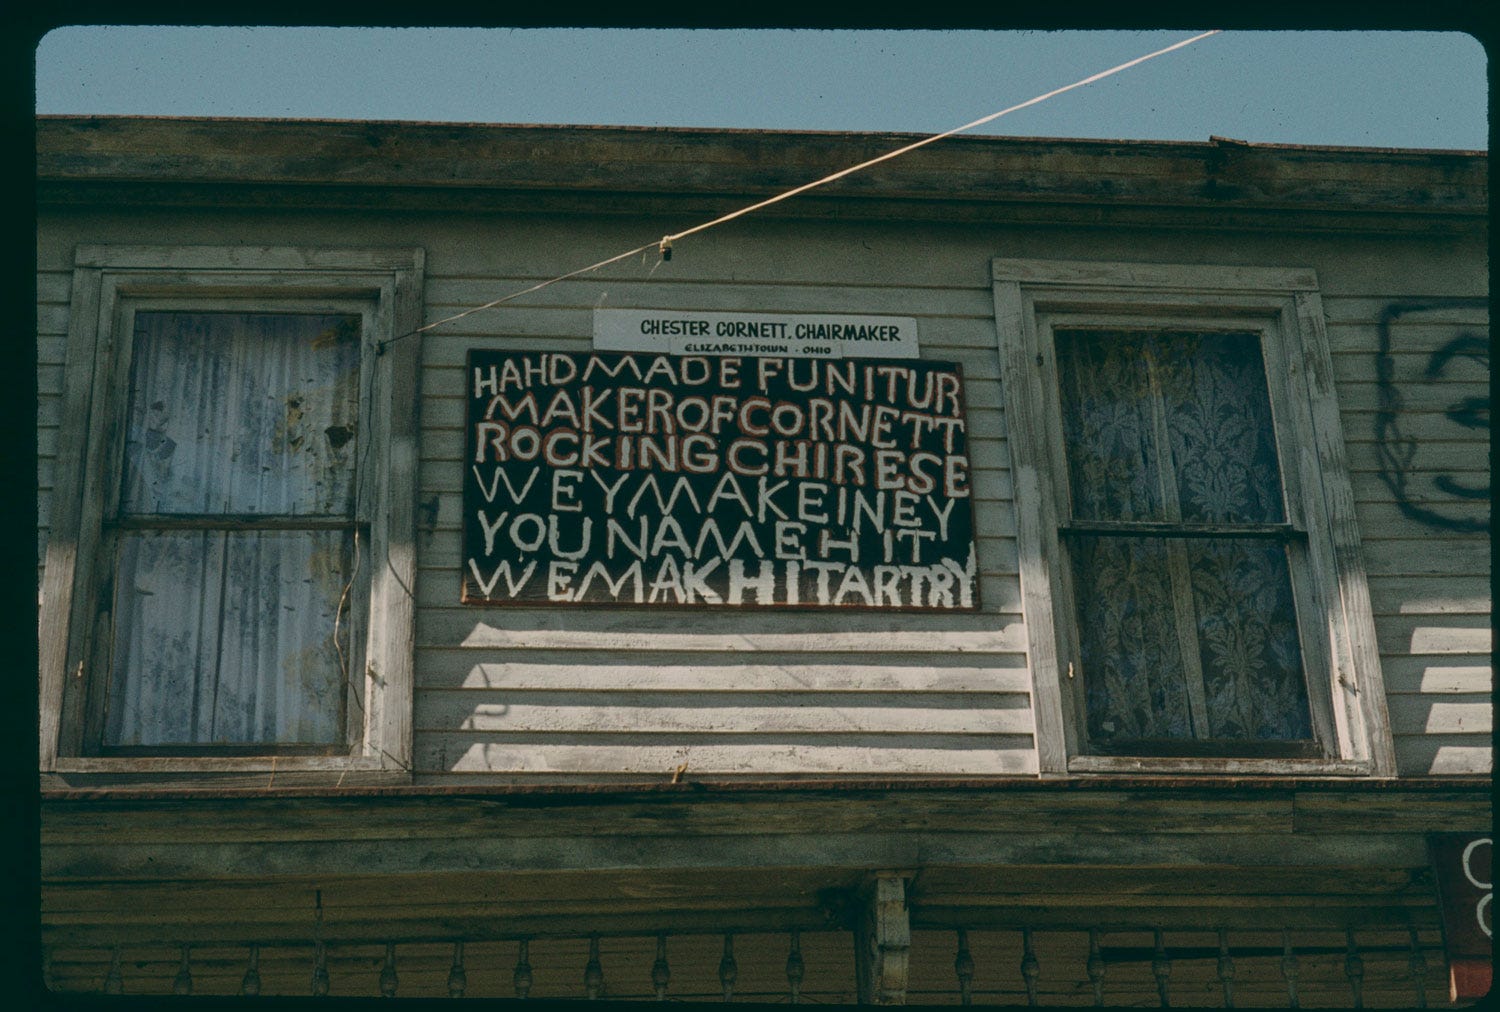 CHESTER CORNETT. CHAIRMAKER
ELIZABETHTOWN · OHIO
HAHDMADE FUNITUR
MAKEROFCORNETT
ROCKINGCHIRESE
WEYMAKEINEY
YOUNAMEHIT
WEMAKHITARTRY